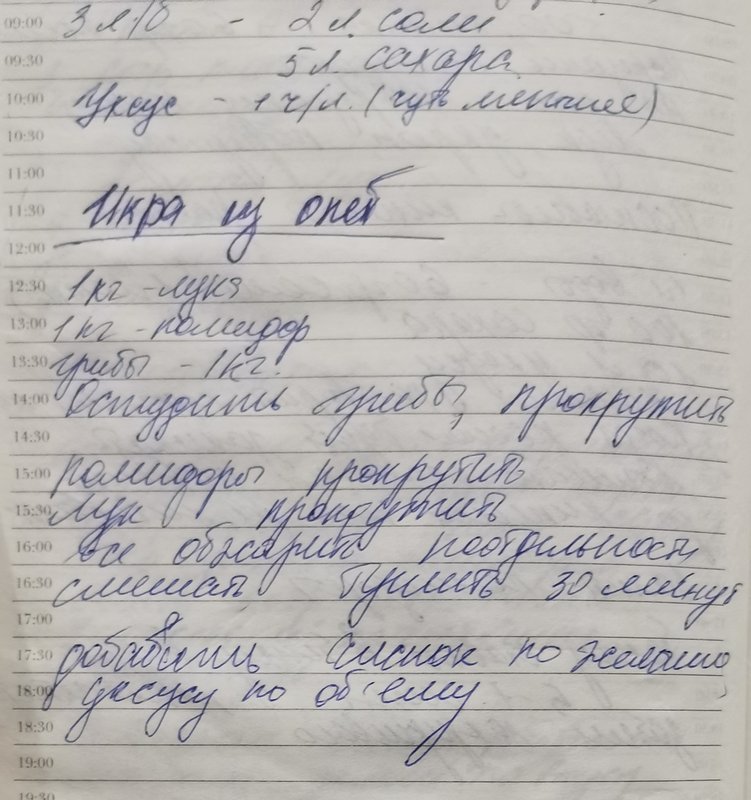 09:00 3 л/б - 2 л. соли
09:30 5 л. сахара
10:00 Уксус - 1 ч/л. (чуть меньше)
10:30
11:00
11:30 Икра из опят
12:00
12:30 1 кг - лука
13:00 1 кг - помидор
13:30 грибы - 1 кг.
14:00 Остудить грибы, прокрутить
14:30
15:00 помидоры прокрутить
15:30 лук прокрутить
16:00 все обжарить поотдельности
16:30 смешать Тушить 30 минут
17:00
17:30 добавить чиснок по желанию,
18:00 уксусу по об'ему
18:30
19:00
19:30